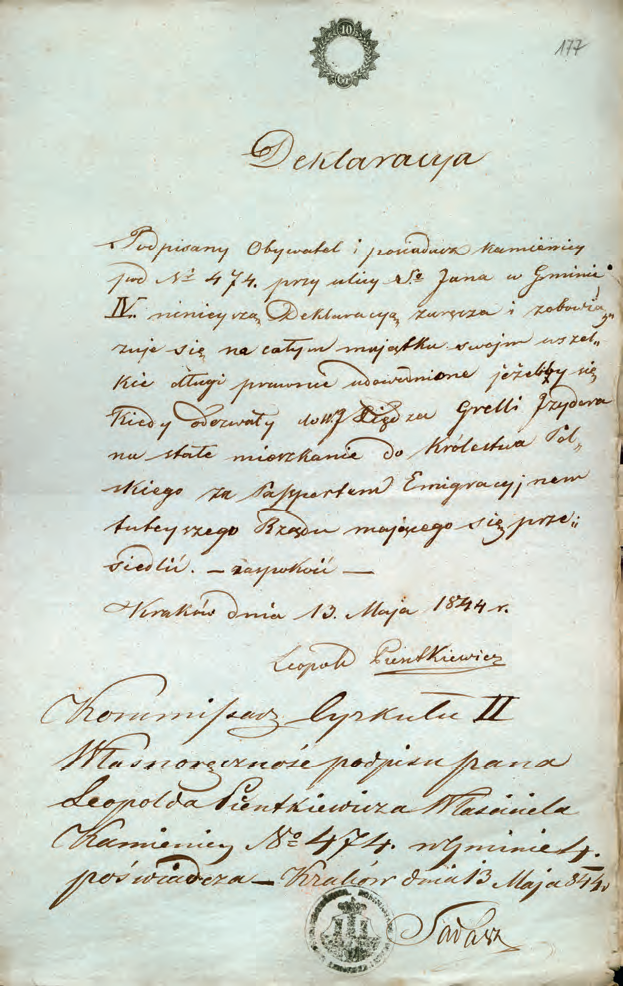 10
Gr
177
Deklaracyja
Podpisany Obywatel i posiadacz kamienicy
pod Nº 474. przy ulicy Sº Jana w Gminie
IV. ninieyszą Deklaracyą zaręcza i zobowią„
zuje się na całym majątku swojm wszel„
kie długi prawnie udowodnione jeżeliby się
kiedy odezwały do Xiędza Grelli Jzydora
na stałe mieszkanie do Królestwa Pol„
skiego za Passportem Emigracyjnem
tuteyszego Rządu mającego się prze„
siedlić. — zaspokoić —
Kraków dnia 13. Maja 1844 r.
Leopold Pientkiewicz
Kommissarz Cyrkułu II
Własnoręczność podpisu pana
Leopolda Pientkiewicza Właściciela
Kamienicy Nº 474. w Gminie 4.
poświadcza — Kraków dnia 13 Maja 844